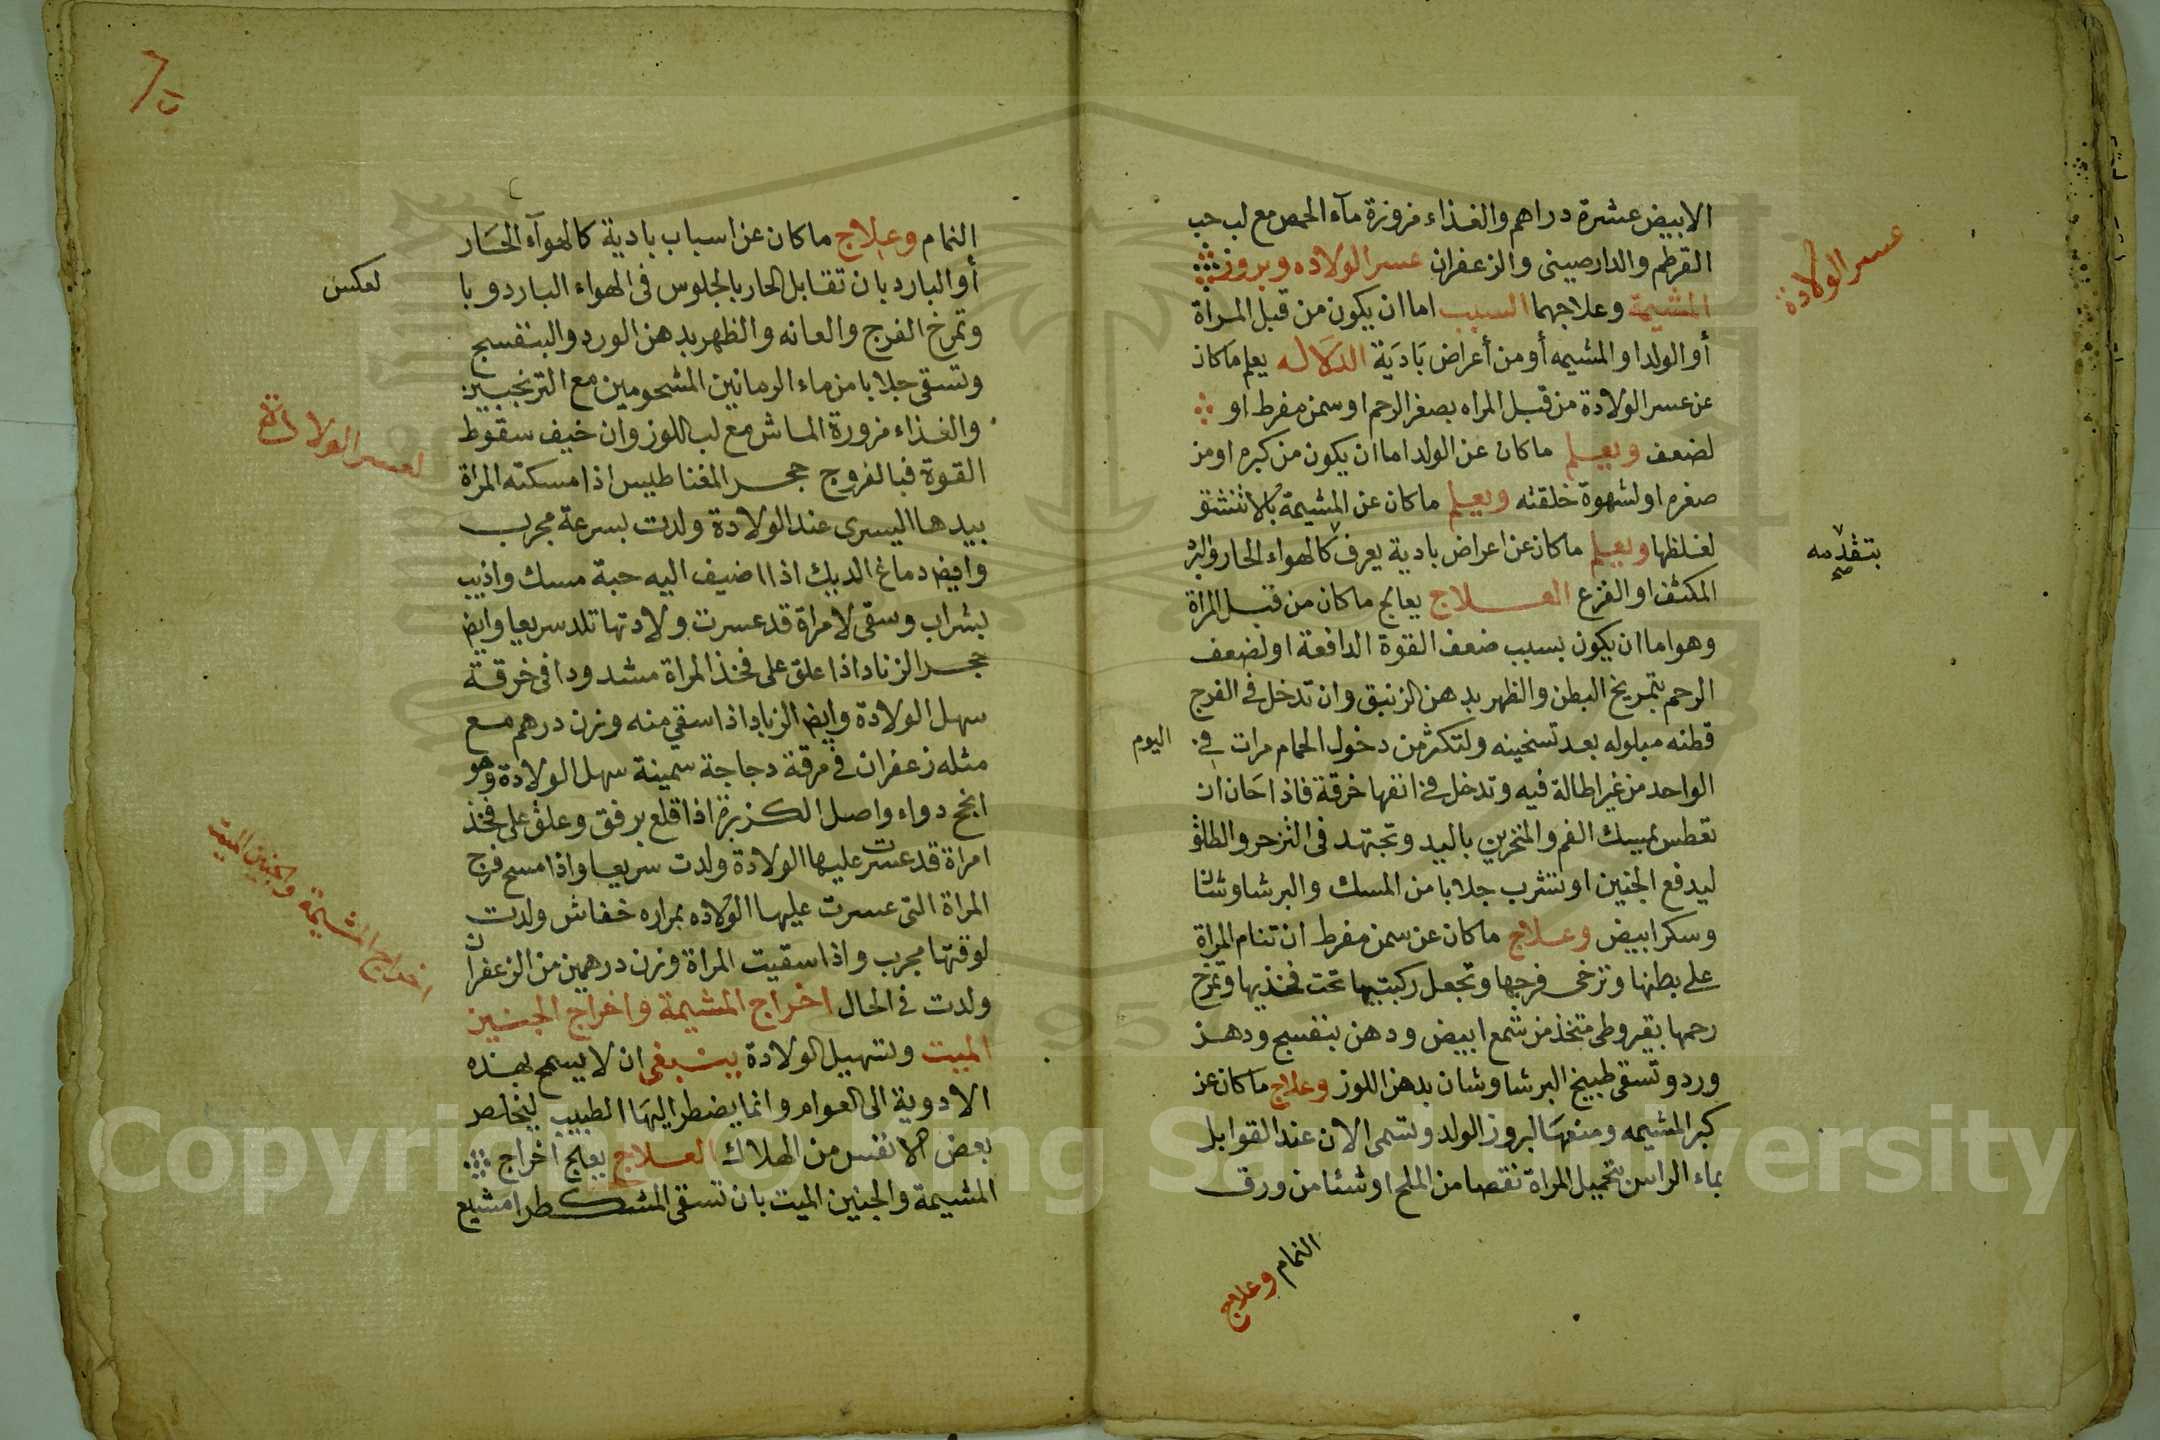 الابيض عشرة دراهم والغذاء مزورة مآء الحمص مع لب حب
القرطم والدارصينى والزعفران عسر الولاده وبروز
المشيمة وعلاجهما السبب اما ان يكون من قبل المراة
أو الولد او المشيمه أو من أعراض بَادَية الدَلاله يعلم مَا كان
عن عسر الولادة من قبل المراه بصغر الرحم او سمن مفرط او
لضعف ويعلم ما كان عن الولد اما ان يكون من كبره او من
صغره او لشهوة خلقته ويعلم ما كان عن المشيمة بالا تنشق
لغلظها ويعلم ما كان عن اعراض بادية يعرف كالهواء الحار والبرد
المكثف او الفزع العلاج يعالج ما كان من قبل المراة
وهو اما ان يكون بسبب ضعف القوة الدافعة او لضعف
الرحم بتمريخ البطن والظهر بدهن الزنبق وان تدخل فى الفرج
قطنه مبلوله بعد تسخينه ولتكثر من دخول الحمام مرات في
الواحد من غير اطالة فيه وتدخل في انفها خرقة فاذا حَان ان
تعطس يمسك الفم والمنخرين باليد وتجتهد فى التزحر والطلق
ليدفع الجنين او تشرب جلابا من المسك والبرشاوشان
وسكر ابيض وعلاج ما كان عن سمن مفرط ان تنام المراة
على بطنها وترخى فرجها وتجعل ركبتيها تحت فخذيها وتمرخ
رحمها بقيروطى متخذ من شمع ابيض ودهن بنفسج ودهن
ورد وتسقى طبيخ البرشاوشان بدهن اللوز وعلاج ما كان عن
كبر المشيمه ومنعهَا لبروز الولد وتسمى الان عند القوابل
بماء الراس بتحميل المراة نقصا من الملح او شئا من ورق
النمام وعلاج
عسر الولادة
بتقدمه
صح
اليوم
النمام وعلاج ما كان عن اسباب بادية كالهوآء الحَار
أو البارد بان تقابل الحار بالجلوس فى الهواء البارد وبا
وتمرخ الفرج والعانه والظهر بدهن الورد والبنفسج
وتسقى جلابا من ماء الرمانين المشحومين مع الترنجبين
والغذاء مزورة الماش مع لب اللوز وان خيف سقوط
القوة فبالفروج حجر المغناطيس اذا مسكته المراة
بيدها اليسرى عند الولادة ولدت بسرعة مجرب
وايض دماغ الديك اذا اضيف اليه حبة مسك واذيب
بشراب وسقى لامراة قد عسرت ولادتها تلد سريعا وايض
حجر الزناد اذا علق على فخذ المراة مشدودا فى خرقة
سهل الولادة وايض الزباد اذا سقي منه وزن درهم مع
مثله زعفران في مرقة دجاجة سمينة سهل الولادة وهو
انجح دواء واصل الكزبرة اذا قلع برفق وعلق على فخذ
امراة قد عسرت عليها الولادة ولدت سريعا واذا مسح فرج
المراة التى عسرت عليها الولاده بمراره خفاش ولدت
لوقتها مجرب واذا سقيت المراة وزن درهمين من الزعفران
ولدت في الحال اخراج المشيمة واخراج الجنين
الميت وتسهيل الولادة ينبغى ان لا يسمح بهذه
الادوية الى العوام وانما يضطر اليهَا الطبيب ليخلص
بعض الانفس من الهلاك العلاج يعالج اخراج
المشيمة والجنين الميت بان تسقى المشكطرامشيع
لعكس
لعسر الولادة
اخراج المشيمة والجنين الميت